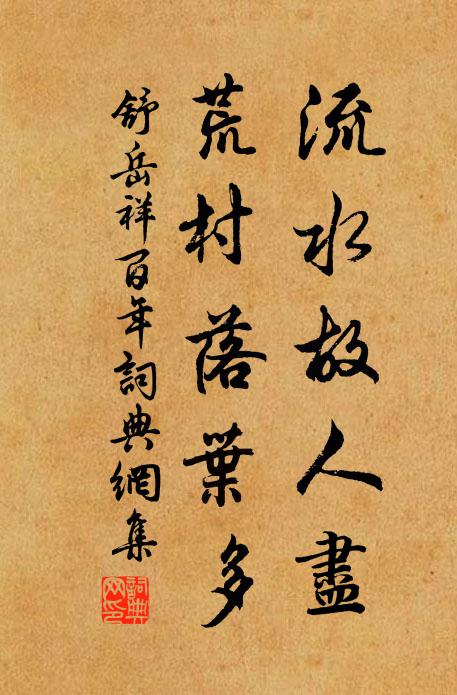 流水故人盡
荒村落葉多
舒岳祥百年詞典網集
詞典
网印